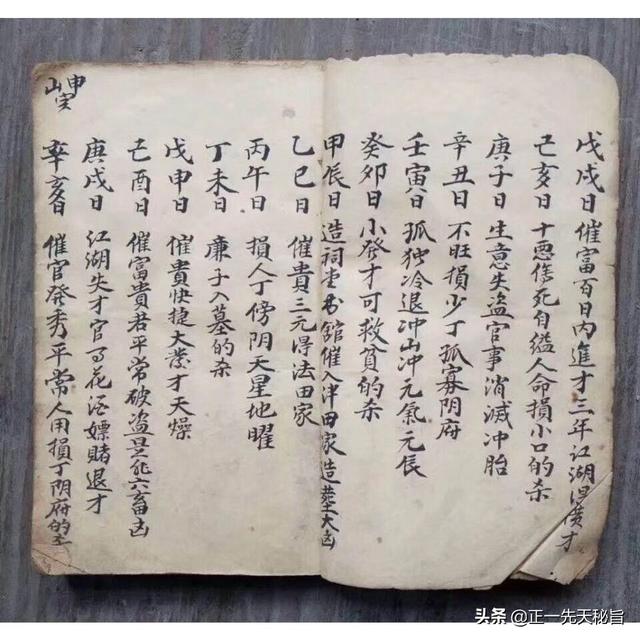 戊戌日 催富百日内進才三年江湖才
己亥日 十恶傷死自縊人命損小口的杀
庚子日 生意失盗官事消滅冲胎
辛丑日 不旺損少丁孤寡阴府
壬寅日 孤独冷退冲山冲元氣元辰
癸卯日 小發才可救貧的杀
甲辰日 造祠堂书館催入泮田家造葬大凶
乙巳日 催貴三元得法田家
丙午日 損人丁傍阴天星地曜
丁未日 廉子入墓的杀
戊申日 催貴快捷大發才天燥
己酉日 催富貴君平常破盗是非六畜凶
庚戌日 江湖失才官司花酒嫖賭退才
辛亥日 催官發秀平常人用損丁阴府的
申山
头条 @正一先天秘旨